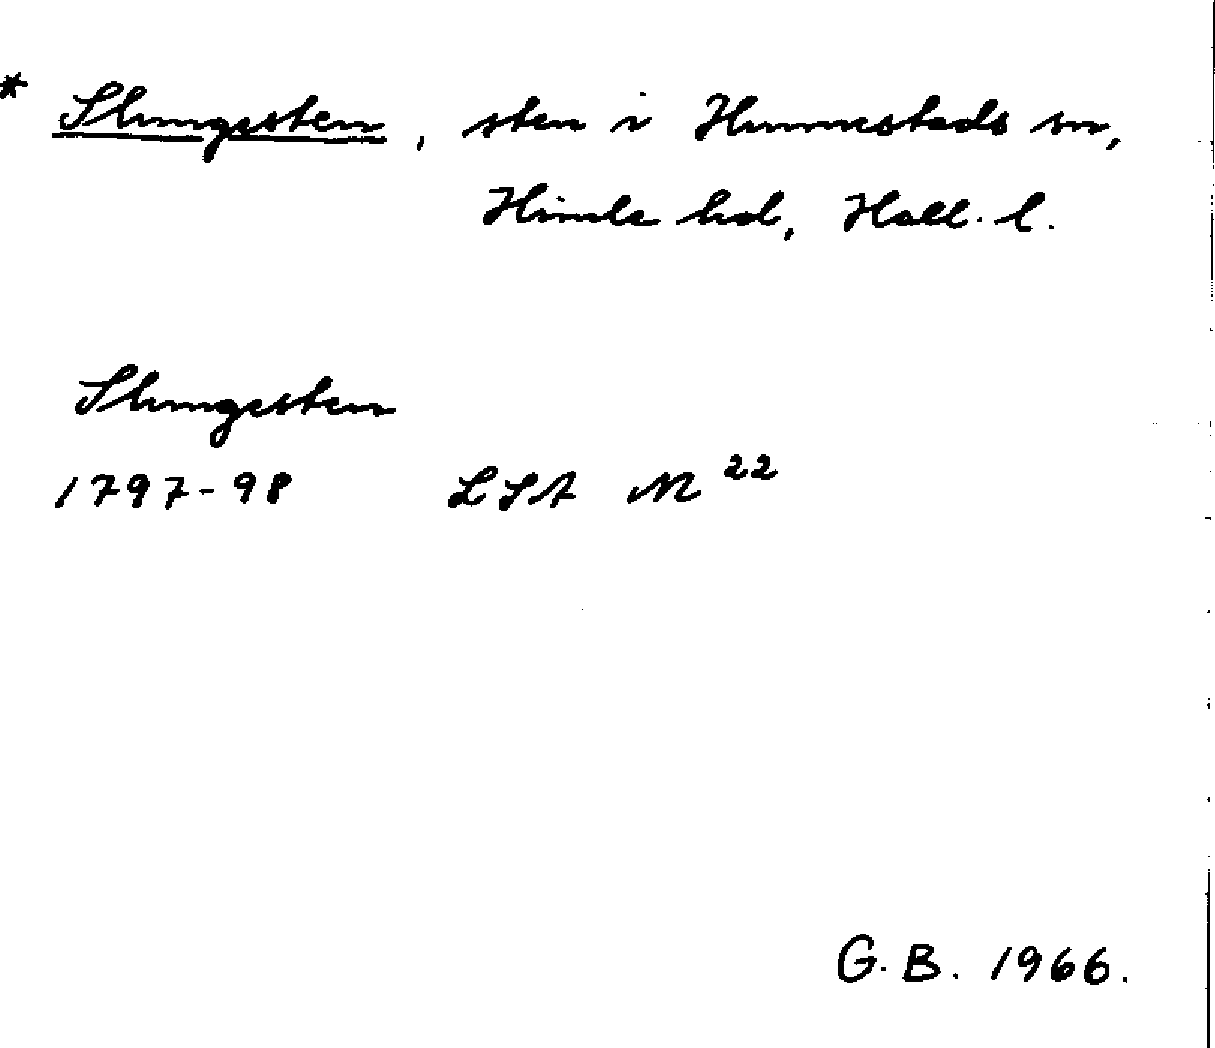 * Slungesten, sten i Hunnestads sn,
Himle hd, Hall. l.
Slungesten
1797-98 LSA N 22
G. B. 1966.